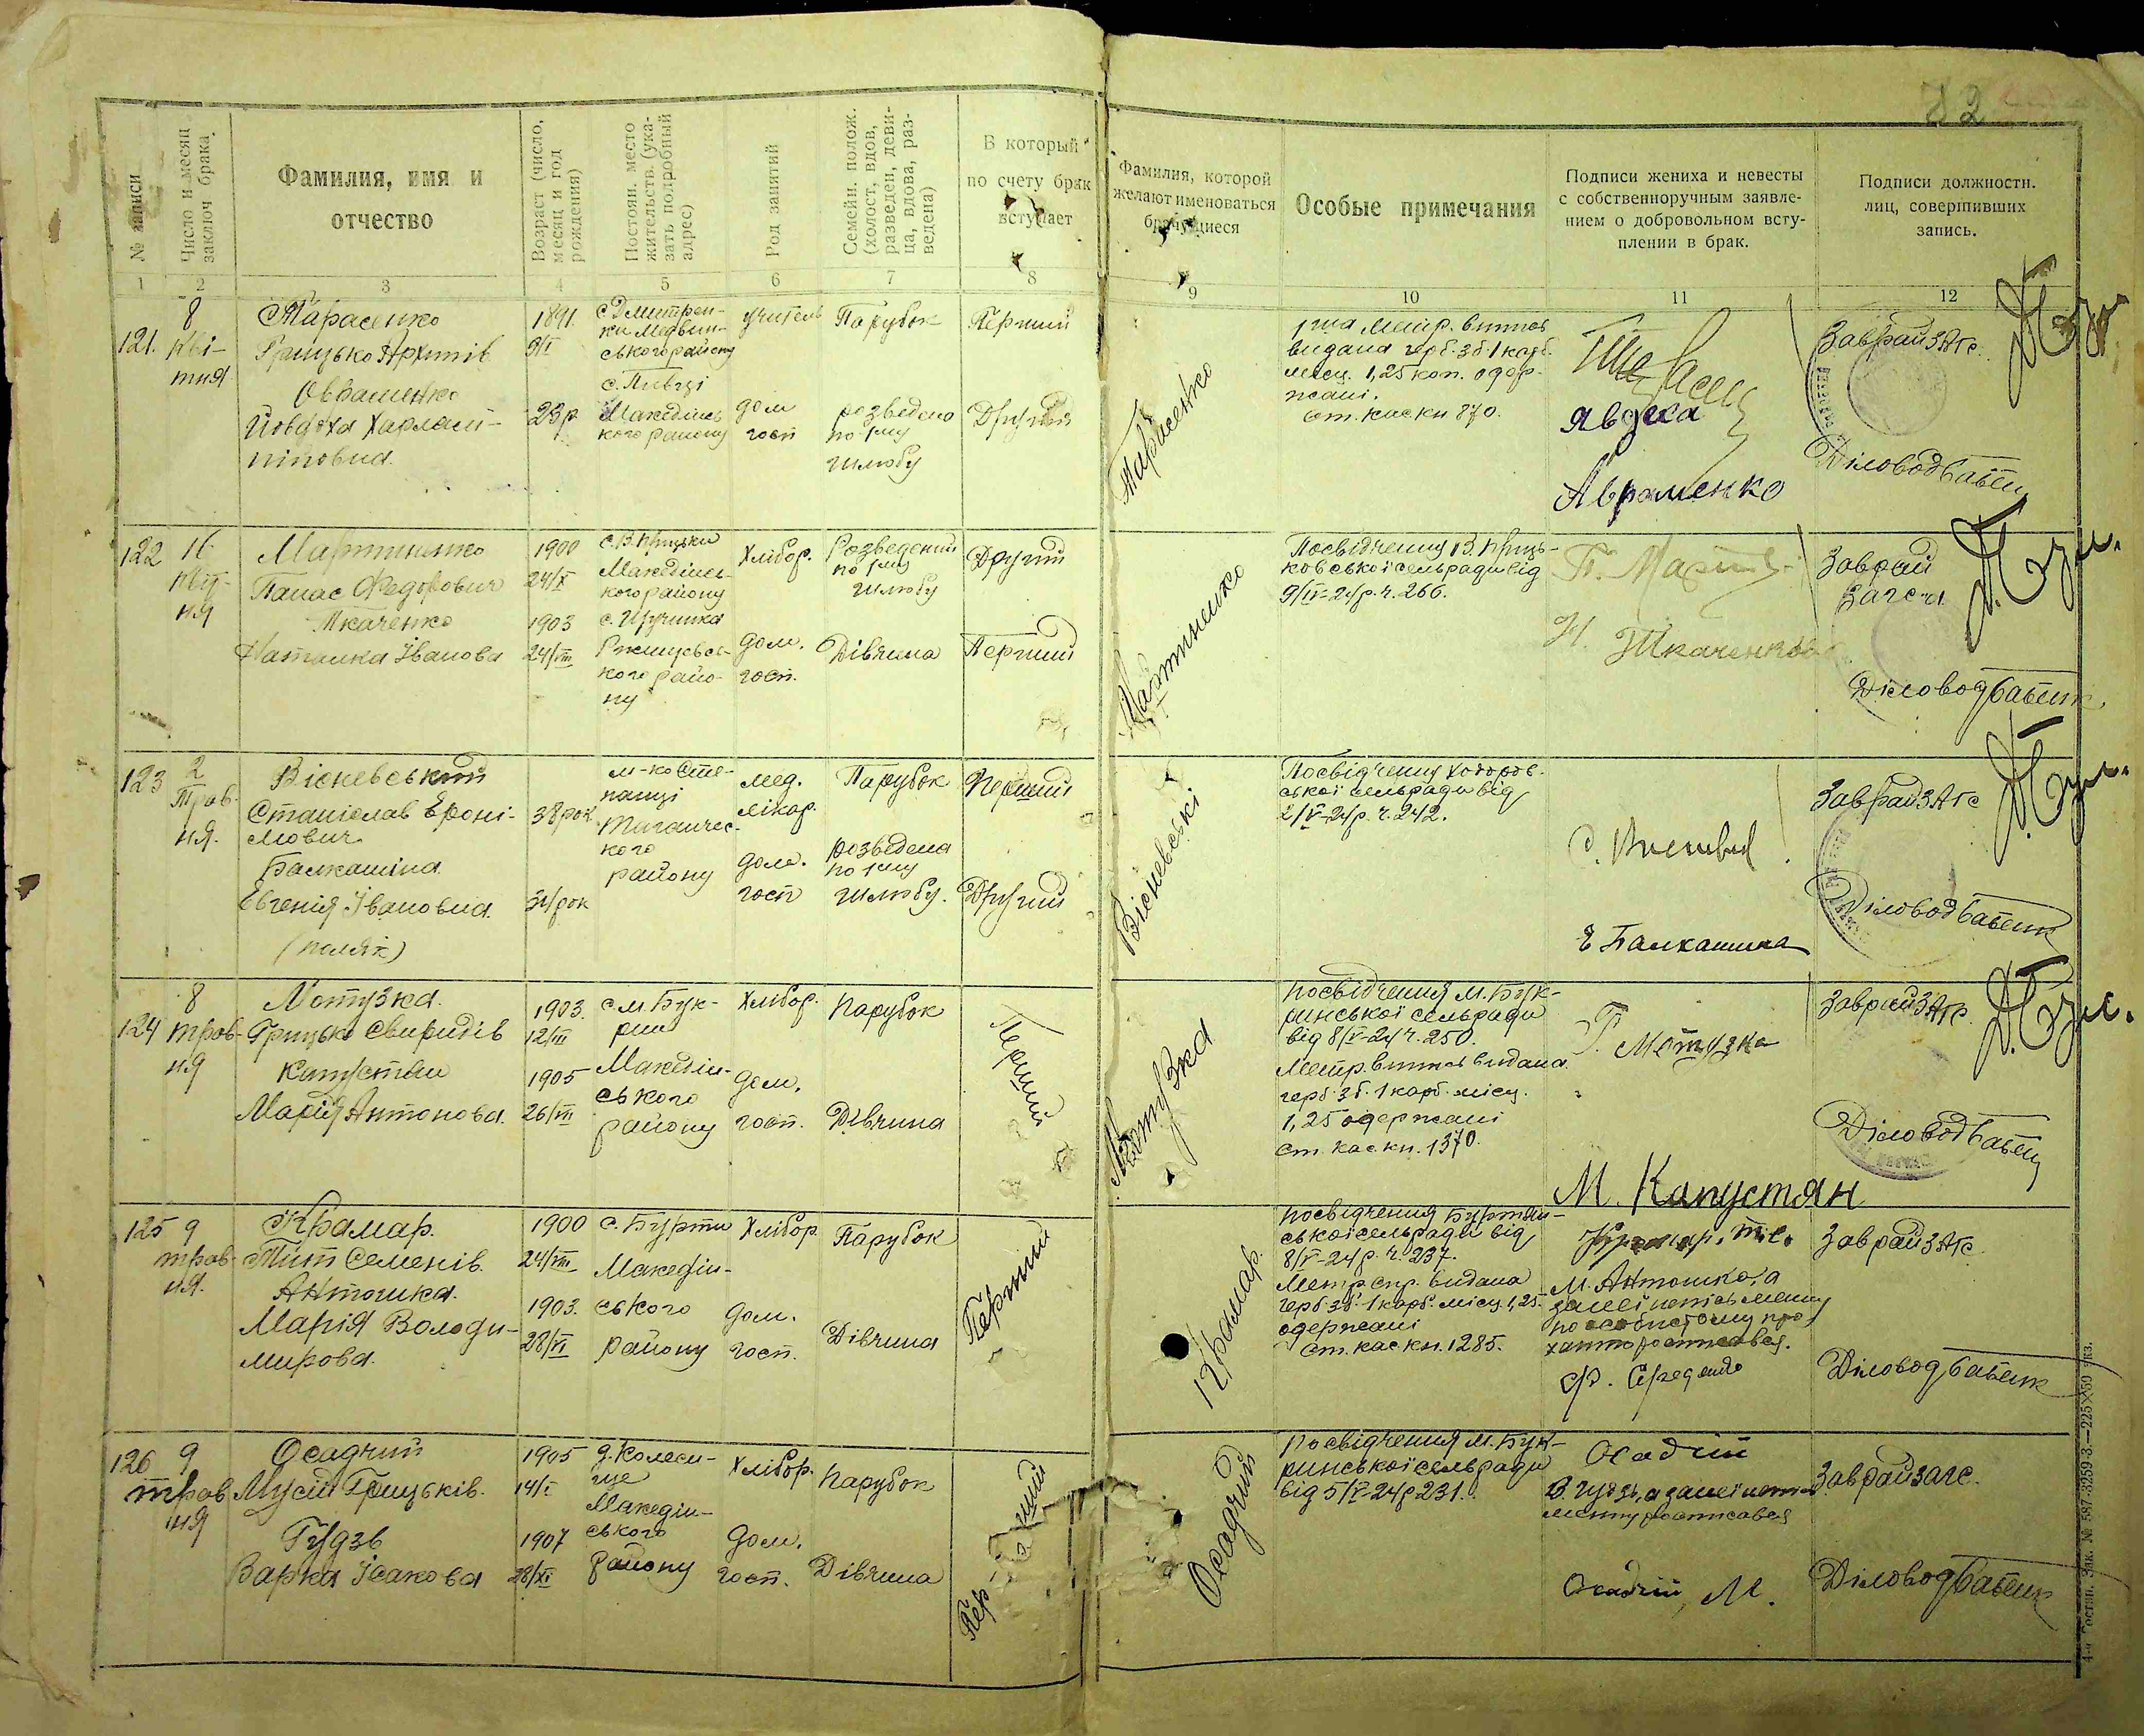 82
№ записи
Число и месяц заключ брака
Фамилия, имя и отчество
Возраст (число, месяц и год рождения)
Постоян. место жительств. (указать подробный адрес)
Род занятий
Семейн. полож. (холост, вдов, разведен, девица, вдова, разведена)
В который по счету брак вступает
Фамилия, которой желают именоваться брачущиеся
Особые примечания
Подписи жениха и невесты с собственноручным заявлением о добровольном вступлении в брак.
Подписи должностн. лиц, совершивших запись.
1 2 3 4 5 6 7 8 9 10 11 12
121.
8
Кві-
тня
Тарасенко
Грицько Архипів
Овраменко
Йовдоха Харлам-
піновна.
1891.
9/I
23 р
с Дмитрен-
ки Медвин-
ського району
с. Пивці
Македінсь
кого району
учитель
дом
госп
Парубок
розведено
по 1му
шлюбу
Перший
Другий
Тарасенко
1 ша Метр. витяг
видана герб. зб. 1 карб.
місц. 1,25 коп. одер-
жані.
ст. кас кн 870.
Явдоха
Авраменко
Заврайзагс.
Діловод Бабенк
122
16
квіт-
ня
Мартиненко
Панас Федорович
Ткаченко
Наталка Іванова
1900
24/X
1903
24/VIII
с. В. Прицьки
Македінсь-
кого району
с.
Ржищевсь-
кого райо-
ну
Хлібор.
дом.
госп.
Розведений
по 1му
шлюбу
Дівчина
Другий
Перший
Мартиненко
Посвідчення В. Приць-
ковської сельради від
9/IV-24 р. ч. 266.
П. Март
Н. Ткаченкова
Заврай
Загса
Діловод Бабенк
123
2
Трав-
ня.
Вісневський
Станіслав Ероні-
мович
Балкашіна
Евгенія Івановна.
(поляк)
38 рок
34 рок
м-ко Сте-
панці
Таганчес-
кого
району
мед.
лікар.
дом.
госп
Парубок
розведена
по 1му
шлюбу.
Перший
Другий
Вісневські
Посвідчення Ходоров-
ської сельради від
2/V-24 р. ч. 242.
Е Балкашина
Заврайзагс
Діловод Бабенк
124
8
трав-
ня
Мотузка.
Грицько Свиридів
Капустян
Марія Антонова.
1903.
12/III
1905
26/VII
с. М. Бук-
рин
Македін-
ського
району
Хлібор.
дом.
госп.
Парубок
Дівчина
Перший
Мотузка
Посвідчення М. Бук-
ринської сельради
від 8/V-24 ч. 250.
Метр. витяг видана
герб. зб. 1 карб. місц.
1,25 одержані
ст. кас. кн. 1370.
Г. Мотузка
М. Капустян
Заврайзагс.
Діловод Бабенк
125
9
трав-
ня.
Крамар.
Тит Семенів.
Антошка.
Марія Володи-
мирова.
1900
24/VIII
1903.
28/VI
с. Бурти
Македін-
ського
району
Хлібор.
дом.
госп.
Парубок
Дівчина
Перший
Крамар.
Посвідчення Буртян-
ської сельради від
8/V-24 р. ч. 237.
Метр спр. видана
герб. зб. 1 карб. місц 1,25
одержані
ст. кас кн. 1285.
Крамар. Тит.
М. Антошкова, а
за неї неписьменну
по особистому про
ханню росписався.
Заврайзагс
Діловод Бабенк
126
9
трав
ня
Осадчий
Мусій Грицьків.
Гудзь
Варка Ісакова
1905
14/I
1907
28/XI
д. Колеси-
ще
Македін-
ського
району
Хлібор.
дом.
госп.
Парубок
Дівчина
Пер-
ший
Осадчий
Посвідчення М. Бук-
ринської сельради
від 5/V-24 р 231.
Осадчій
В. Гудзь, а за неї непись
менну росписався
Осадчій, М.
Заврайзагс.
Діловод Бабенк
4-я Гостип. Зак. № 587-3259-3.—225×50 экз.